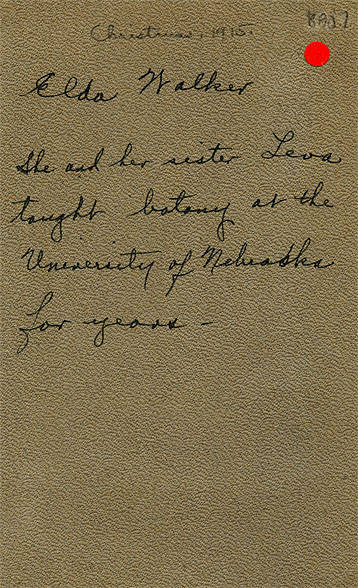 Christmas, 1915.
Elda Walker
She and her sister Leva
taught botany at the
University of Nebraska
for years -